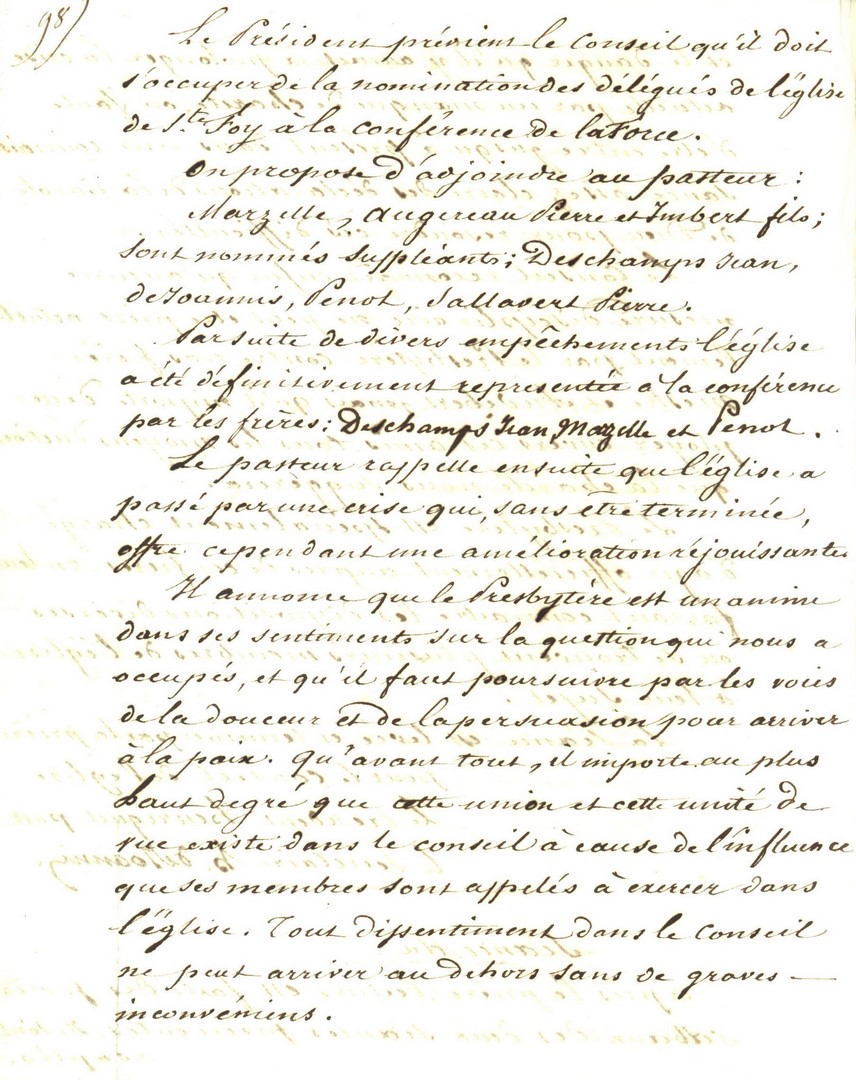 98)
Le Président prévient le Conseil qu'il doit
s'occuper de la nomination des délégués de l'église
de Ste Foy à la conférence de laforce.
On propose d'adjoindre au pasteur :
Marzelle, Augereau Pierre et Imbert fils ;
sont nommés suppléants ; Deschamps Jean,
de Joannis, Penot, Sallavert Pierre.
Par suite de divers empêchements l'église
a été définitivement representée à la conférence
par les frères : Deschamps Jean, Marzelle et Penot.
Le pasteur rappelle ensuite que l'église a
passé par une crise qui, sans être terminée,
offre cependant une amélioration réjouissante.
Il annonce que le Presbytère est unanime
dans ses sentiments sur la question qui nous a
occupés, et qu'il faut poursuivre par les voies
de la douceur et de la persuasion pour arriver
à la paix. qu'avant tout, il importe au plus
haut degré que cette union et cette unité de
vue existe dans le conseil à cause de l'influence
que ses membres sont appelés à exercer dans
l'église. Tout dissentiment dans le Conseil
ne peut arriver au dehors sans de graves —
inconvéniens.